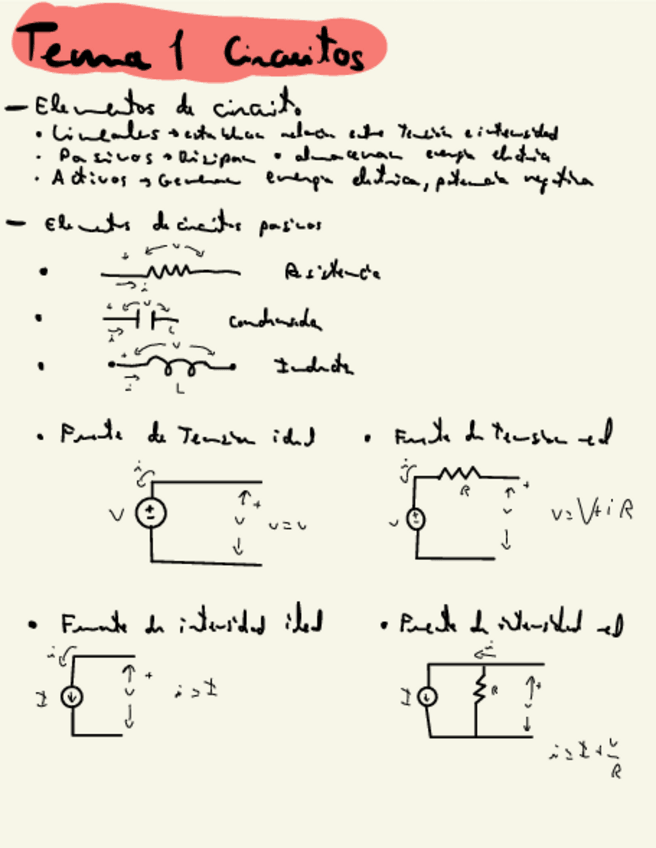 Tema 1 Circuitos
- Elementos de circuito
• Lineales → establecen relación entre tensión e intensidad
• Pasivos → Disipan o almacenan energía eléctrica
• Activos → Generan energía eléctrica, potencia negativa
- Elementos de circuitos pasivos
+ v
• Resistencia
i
+ v
• Condensador
i C
+ v
• Inductor
i L
• Fuente de Tensión ideal • Fuente de tensión real
i i R +
V + v v = v v v v = V + i R
• Fuente de intensidad ideal • Fuente de intensidad real
i i
I + v i = I I R + v
i = I + v/R